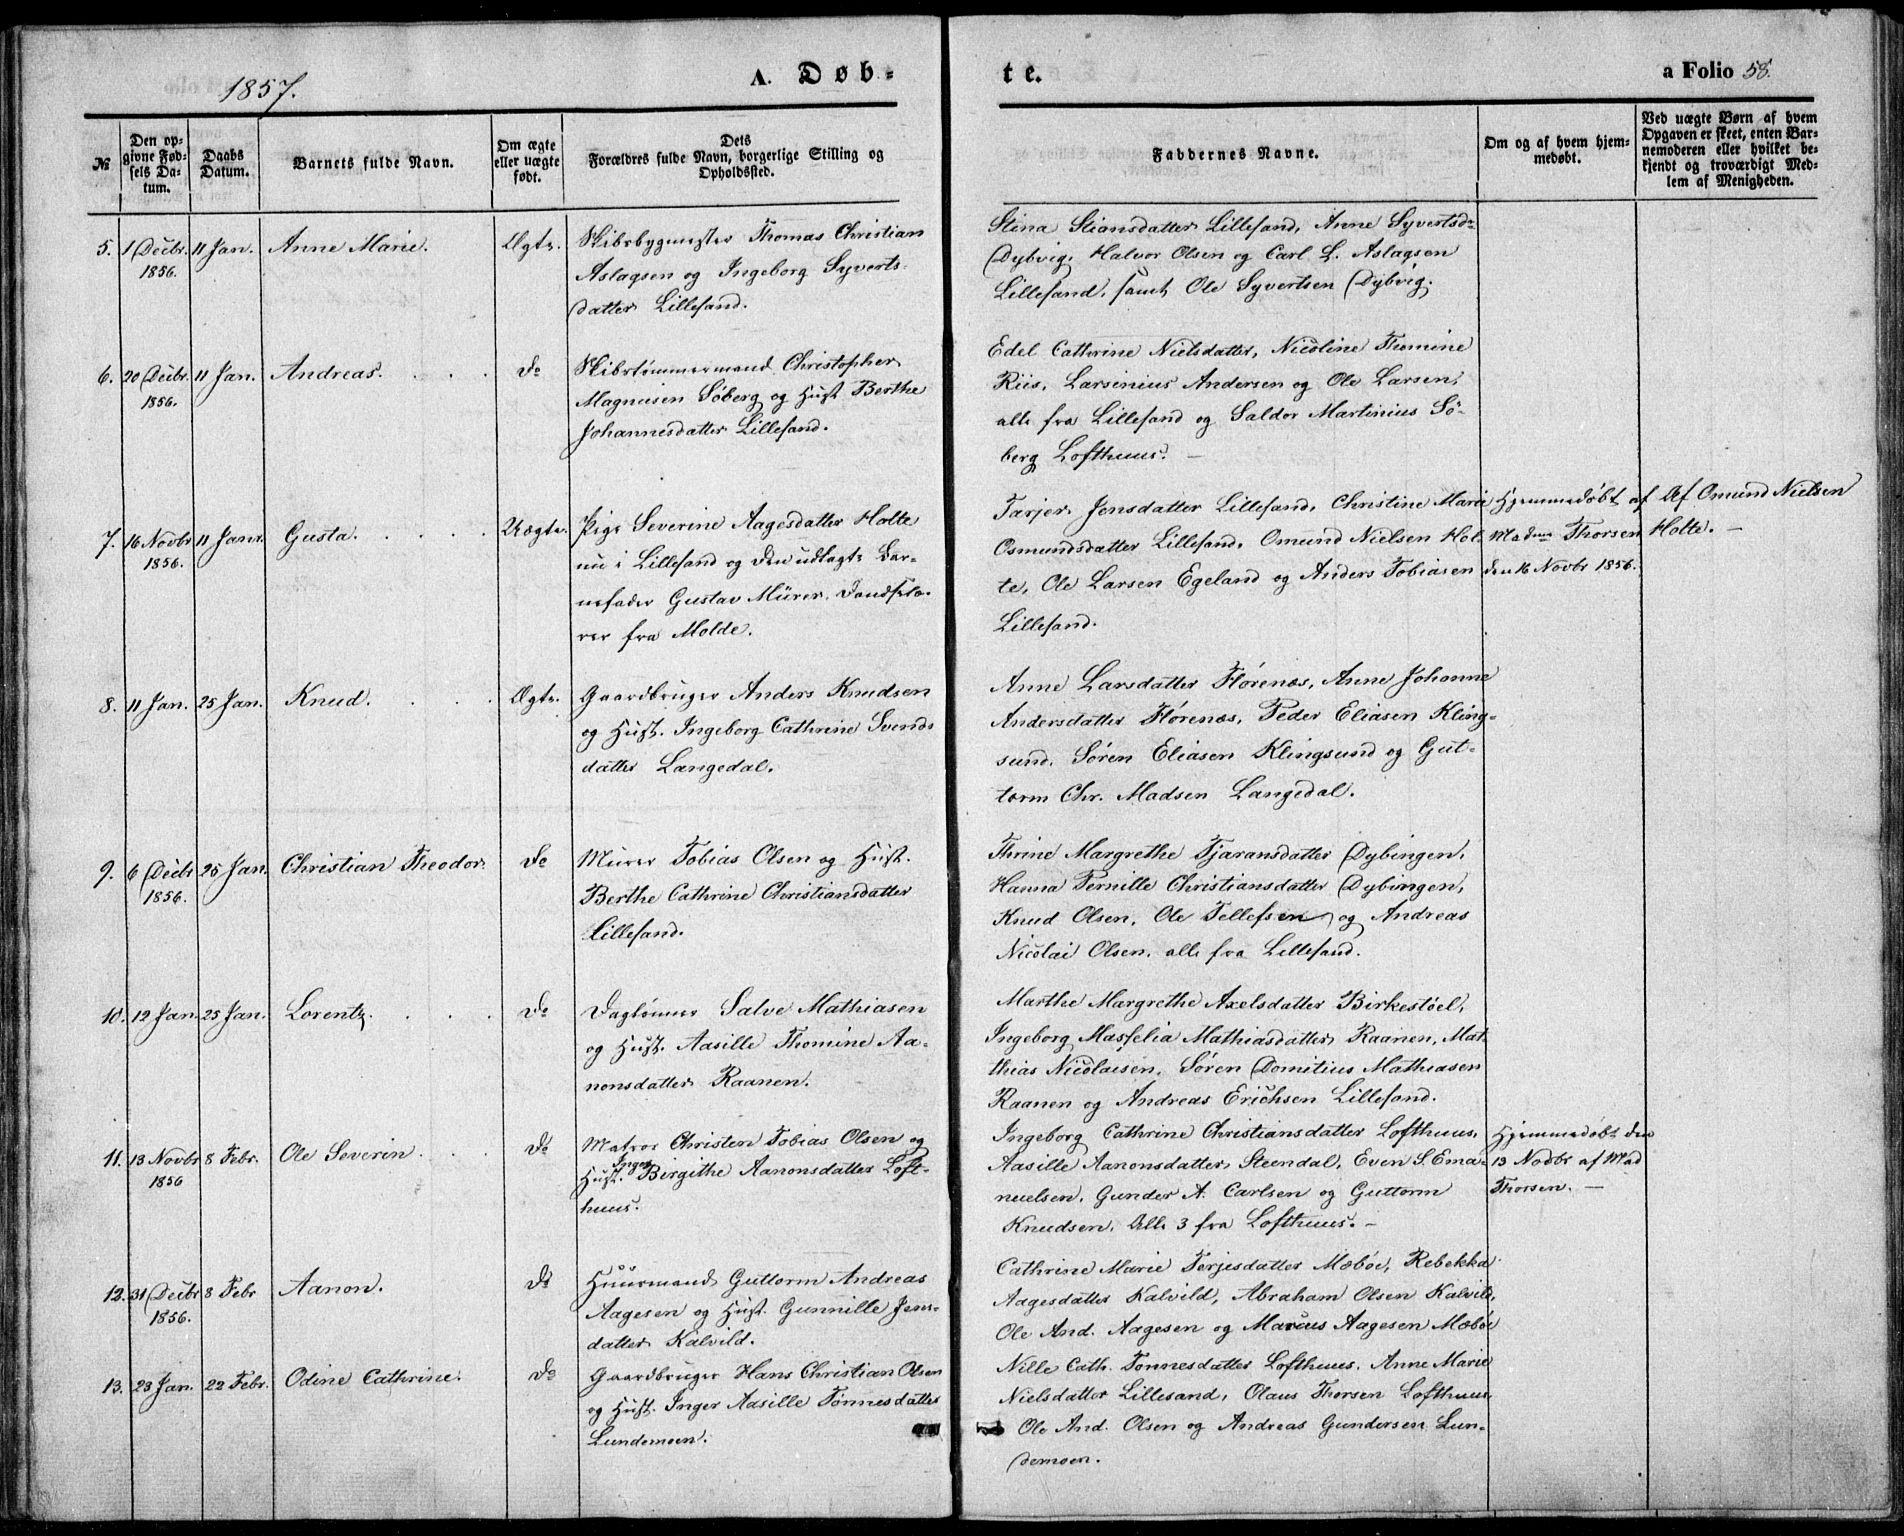 1857.
A. Døb-
te.
a Folio 58.
№
Den op-
givne Fød-
sels Da-
tum.
Daabs
Datum.
Barnets fulde Navn.
Om ægte
eller uægte
født.
Dets
Forældres fulde Navn, borgerlige Stilling og
Opholdssted.
Faddernes Navne.
Om og af hvem hjem-
medøbt.
Ved uægte Børn af hvem
Opgaven er skeet, enten Bar-
nemoderen eller hvilket be-
kjendt og troværdigt Med-
lem af Menigheden.
5. 1 Decbr. 1856. 11 Jan. Anne Marie. Ægte.
Skibsbygmester Thomas Christian
Aslagsen og Ingeborg Syverts-
datter Lillesand.
Stina Stiansdatter Lillesand, Anne Syvertsdr
Dybvig, Halvor Olsen og Carl L. Aslagsen
Lillesand, samt Ole Syvertsen Dybvig.
6. 20 Decbr. 1856. 11 Jan. Andreas. Do
Skibstømmermand Christopher
Magnusen Söberg og Hust. Berthe
Johannesdatter Lillesand.
Edel Cathrine Nielsdatter, Nicoline Thomine
Riis, Larsinius Andersen og Ole Larsen,
alle fra Lillesand og Saldor Martinius Sö-
berg Lofthuus. —
7. 16 Novbr 1856. 11 Janr. Gusta. Uægte.
Pige Severine Aagesdatter Holte
nu i Lillesand og den udlagte Bar-
nefader Gustav Mürer, Landsto-
rer fra Molde.
Tarjer Jensdatter Lillesand, Christine Marie
Osmundsdatter Lillesand, Omund Nielsen Hol-
te, Ole Larsen Egeland og Anders Tobiasen
Lillesand.
Hjemmedøbt af
Madme Thorsen
den 16 Novbr 1856.
Af Omund Nielsen
Holte. —
8. 11 Jan. 25 Jan. Knud. Ægte.
Gaardbruger Anders Knudsen
og Hust. Ingeborg Cathrine Svends-
datter Langedal.
Anne Larsdatter Flørenæs, Anne Johanne
Andersdatter Flørenæs, Peder Eliasen Kling-
sund, Søren Eliasen Klingsund og Gut-
torm Chr. Madsen Langedal.
9. 6 Decbr 1856. 25 Jan. Christian Theodor. Do
Murer Tobias Olsen og Hust.
Berthe Cathrine Christiansdatter
Lillesand.
Thrine Margrethe Tjaransdatter Dybingen,
Hanna Pernille Christiansdatter Dybingen,
Knud Olsen, Ole Tellefsen og Andreas
Nicolai Olsen, alle fra Lillesand.
10. 12 Jan. 25 Jan. Lorentz. Do
Daglønner Salve Mathiasen
og Hust. Aasille Thomine Aa-
nonsdatter Raanen.
Marthe Margrethe Axelsdatter Birkestøel,
Ingeborg Masselia Mathiasdatter Raanen, Mat-
thias Nicolaisen, Søren Domitius Mathiasen
Raanen og Andreas Erichsen Lillesand.
11. 13 Novbr 1856 8 Febr. Ole Severin. Do
Matros Christen Tobias Olsen og
Hust. Inger Bergithe Aanonsdatter Loft-
huus.
Ingeborg Cathrine Christiansdatter Lofthuus,
Aasille Aanonsdatter Steendal, Even S. Ema-
nuelsen, Gunder A. Carlsen og Guttorm
Knudsen, Alle 3 fra Lofthuus. —
Hjemmedøbt den
13 Novbr af Mad
Thorsen. —
12. 31 Decbr 1856. 8 Febr Aanon. Do
Huusmand Guttorm Andreas
Aagesen og Hust. Gunnille Jens-
datter Kalvild.
Cathrine Marie Terjesdatter Mæbøe, Rebekka
Aagesdatter Kalvild, Abraham Olsen Kalvild,
Ole And. Aagesen og Marcus Aagesen Mæbøe
13. 23 Jan. 22 Febr. Odine Cathrine. Do
Gaardbruger Hans Christian Olsen
og Hust. Inger Aasille Tønnesdatter
Lundemoen.
Nille Cath. Tønnesdatter Lofthuus, Anne Marie
Nielsdatter Lillesand, Olaus Thorsen Lofthuus
Ole And. Olsen og Andreas Gundersen Lun-
demoen.